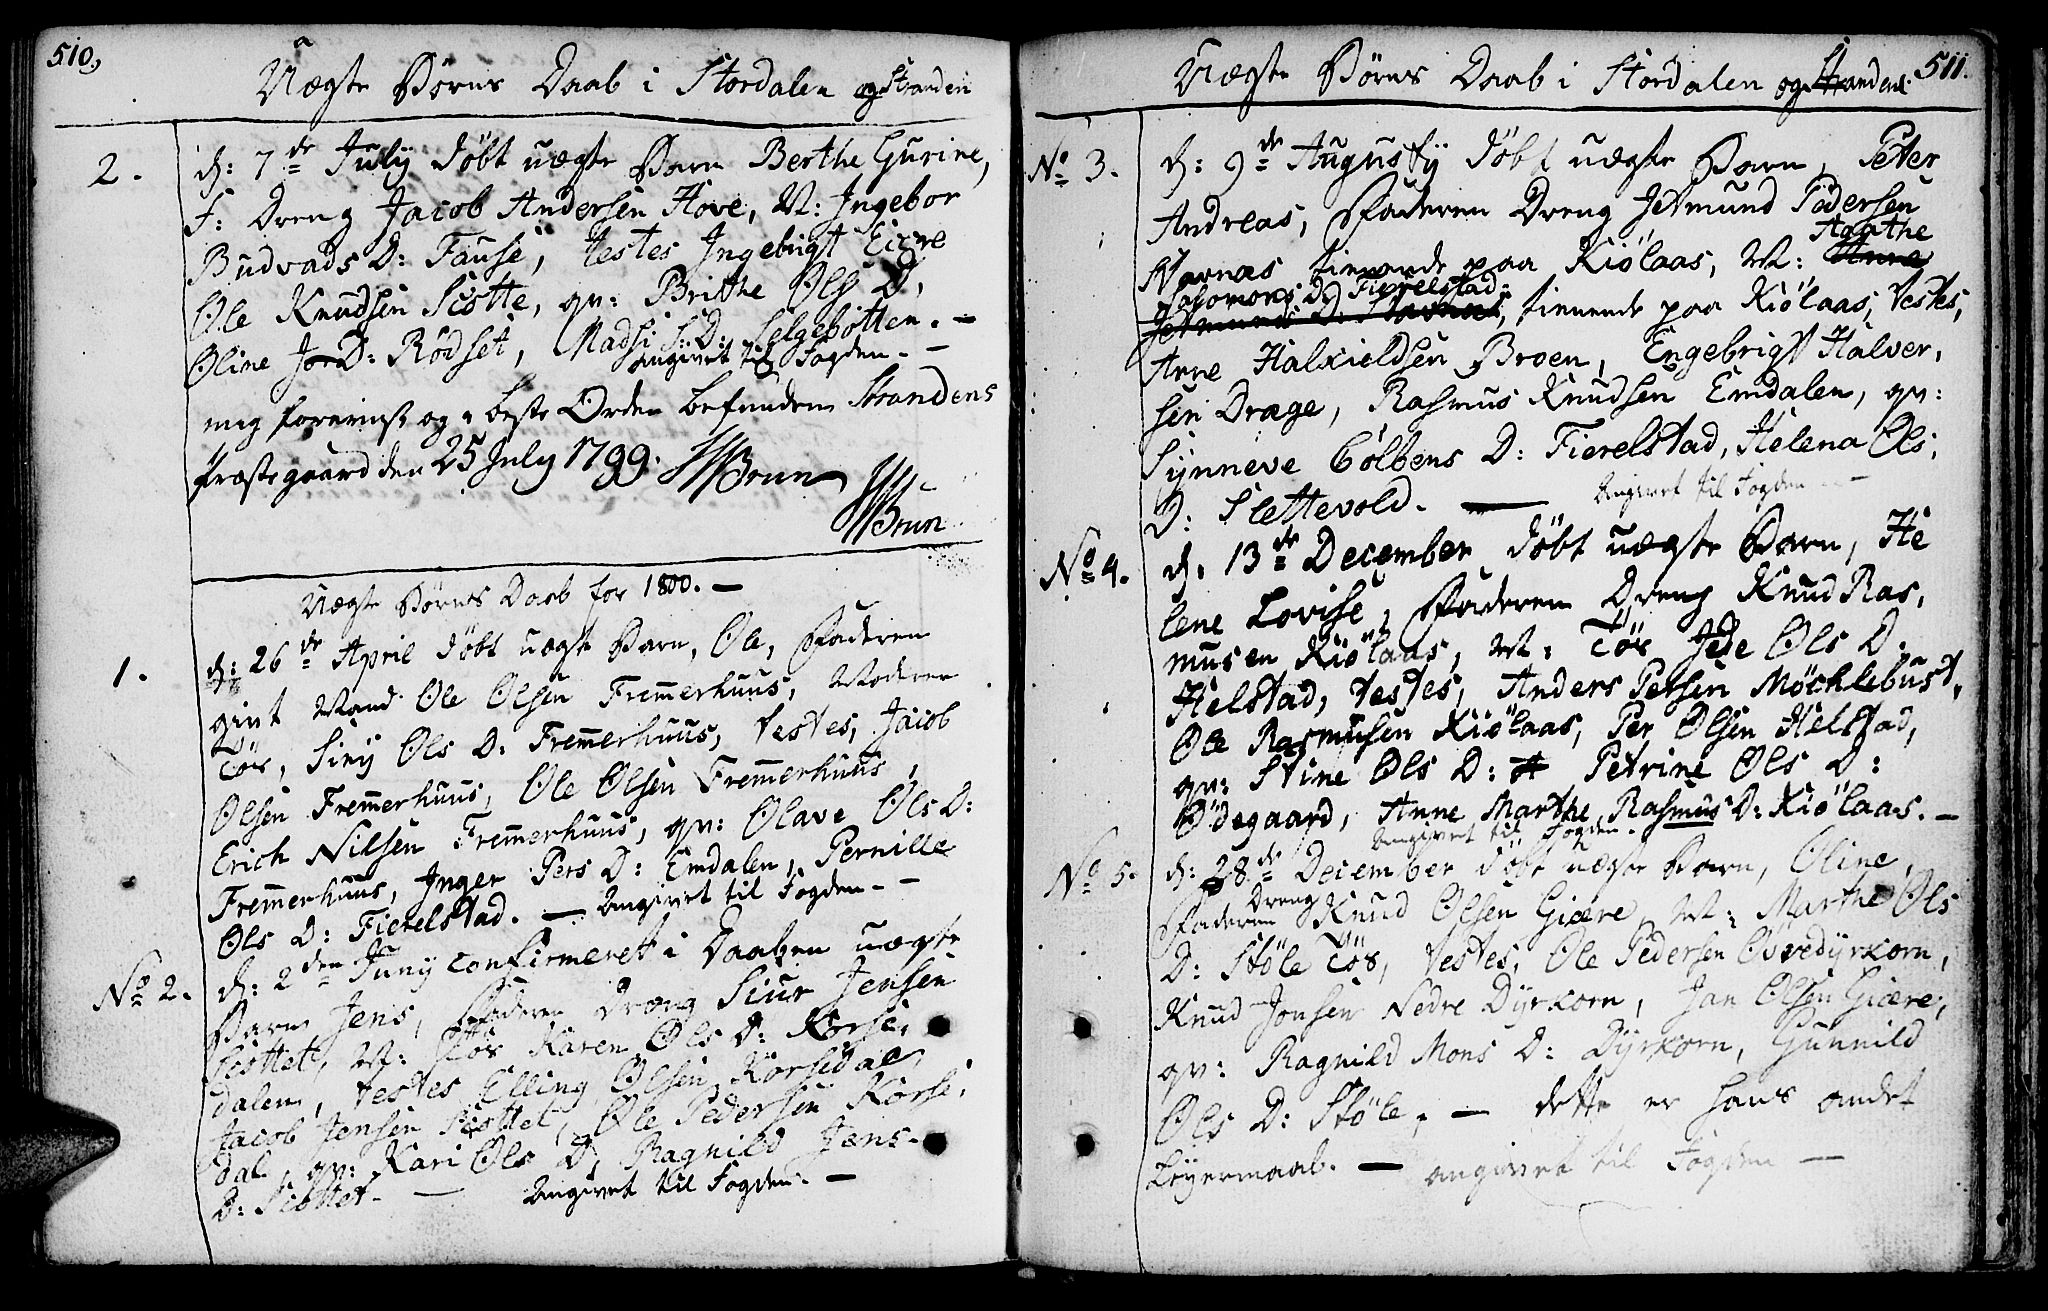 510,
Uægte Børns Daab i Stordalen og Stranden
2. d: 7de July döbt uægte Barn Berthe Gurine,
F: Dreng Jacob Andersen Hove, M: Ingebor
Budvads D: Fause, testes Ingebrigt Eiere
Ole Knudsen Siotte, qv: Brithe Ols D,
Oline Jon D: Rödset, Madsi S: D: Selgebotten. -
angivet til Fogden. -
mig foreviist og i beste Orden befunden Strandens
Præstegaard den 25 July 1799. HBrun
HBrun
Uægte Börns Daab for 1800. -
1. d: 26de April döbt uægte Barn, Ole, Faderen
givt Mand Ole Olsen Fremerhuus, Moderen
Tös, Siry Ols D: Fremerhuus, testes, Jacob
Olsen Fremerhuus, Ole Olsen Fremerhuus,
Erich Nilsen Fremerhuus, qv: Olave Ols D:
Fremerhuus, Inger Pers D: Emdalen, Pernille
Ols D: Fierelstad. - Angivet til Fogden. -
No 2. d: 2den Juny confirmeret i Daaben uægte
Barn Jens, Faderen Dreng Siur Jensen
Siöttet, M: Tös Karen Ols D: Korse,
dalen, testes Elling Olsen Korsedal,
Jacob Jensen Siöttet, Ole Pedersen Korse,
dal, qv: Kari Ols D, Ragnild Jens.
D: Siöttet. - Angivet til Fogden. -
511.
Uægte Börns Daab i Stordalen og Stranden
No 3. d: 9de Augusty döbt uægte Barn, Peter
Andreas, Faderen Dreng Jetmund Pedersen
Agathe
Stavnes tienende paa Kiölaas, M: Anne
Salomons D: Fierelstad:
Jetmunds D: Stavnes, tienende paa Kiölaas, testes,
Arne Halkieldsen Broen, Engebrigt Halver,
sen Drage, Rasmus Knudsen Emdalen, qv:
Synneve Colbens D: Fierelstad, Helena Ols,
D: Slettevold. - Angivet til Fogden -
No 4. d. 13de December döbt uægte Barn, He
lene Lovise, Faderen Dreng Knud Ras,
musen Kiölaas, M: Tös Jede Ols D.
Helstad, testes, Anders Petsen Möchlebust,
Ole Rasmusen Kiölaas, Per Olsen Helstad,
qv: Stine Ols D: Petrine Ols D:
Ödegaard, Anne Marthe Rasmus D: Kiölaas. -
Angivet til Fogden.
No 5. d: 28de December döbt uægte Barn, Oline,
Dreng
Faderen Knud Olsen Giære, M: Marthe Ols
D: Stöle Tös, testes, Ole Pedersen Övvedyrkorn,
Knud Jonsen Nedre Dyrkorn, Jan Olsen Giære,
qv: Ragnild Mons D: Dyrkorn, Gunnild
Ols D: Stöle, - dette er hans andet
Leyermaal. - angivet til Fogden -